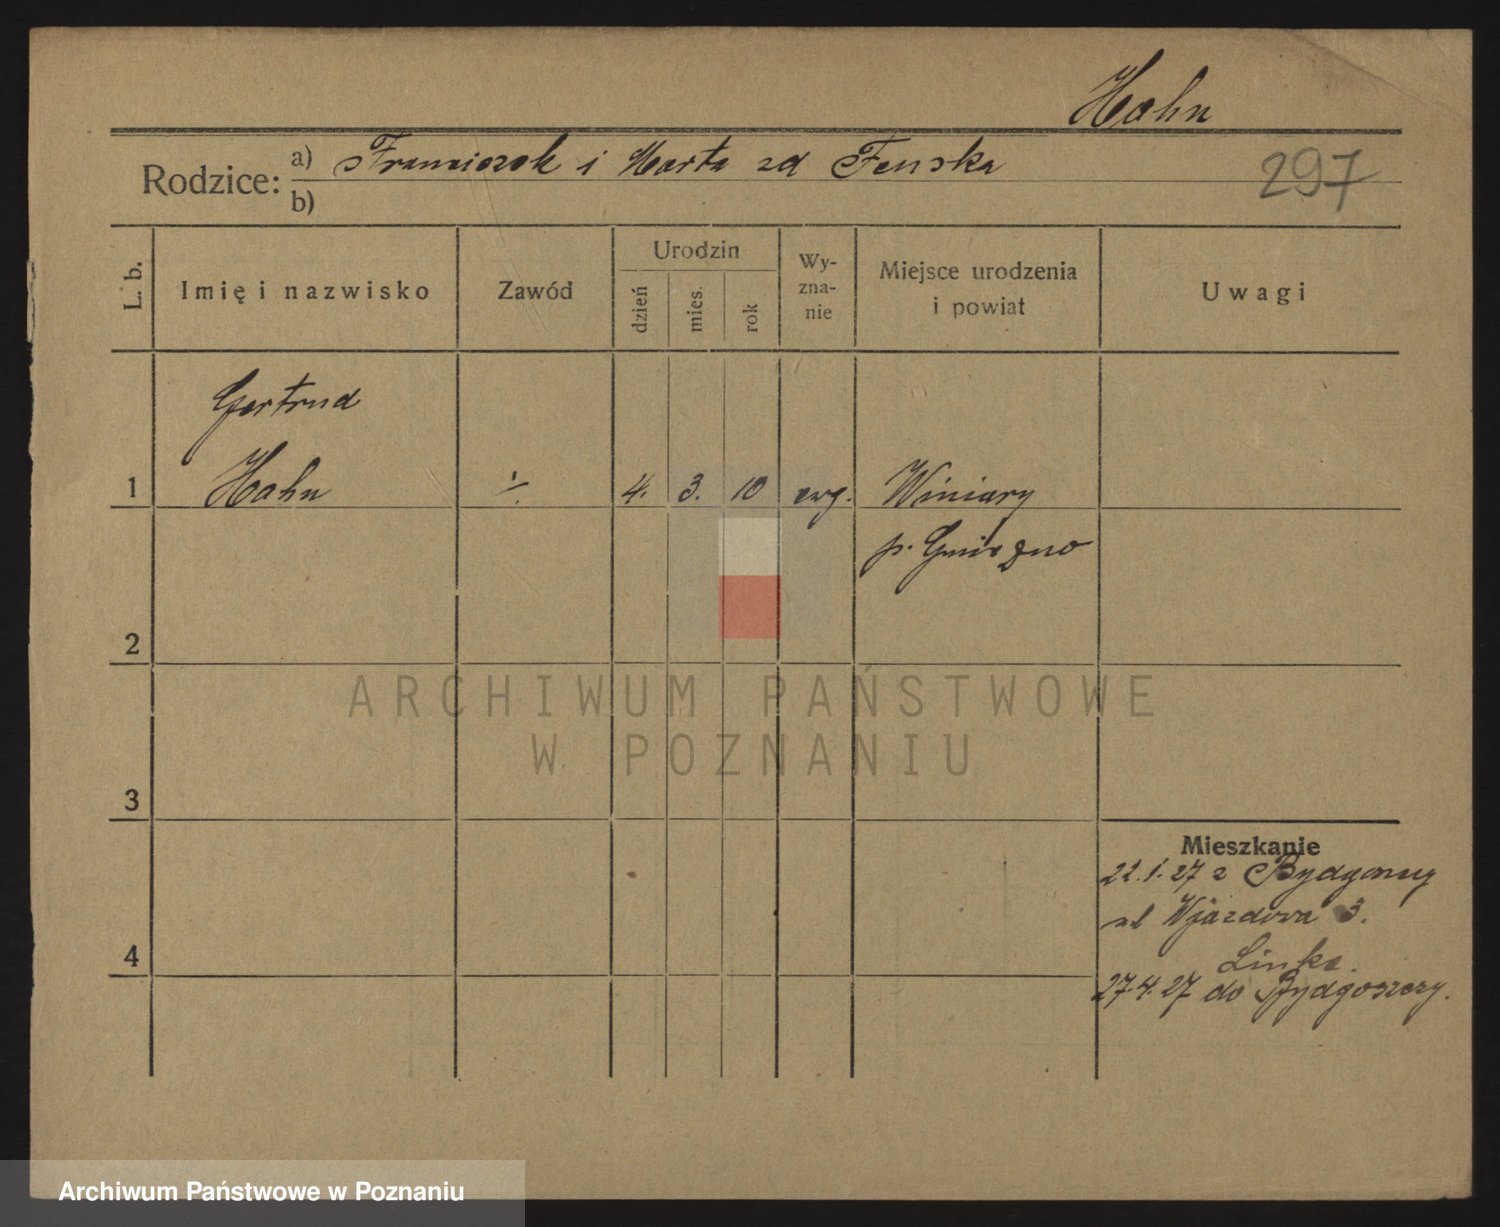 Hahn
Rodzice: a) Franciszek i Marta zd Fenska
297
b)
L. b.
Imię i nazwisko
Zawód
Urodzin
dzień
mies.
rok
Wy-
zna-
nie
Miejsce urodzenia
i powiat
Uwagi
Gertrud
1 Hahn ·/. 4. 3. 10 ewg. Winiary
p. Gniezno
2
ARCHIWUM PAŃSTWOWE
W POZNANIU
3
Mieszkanie
22.1.27 z Bydgoszczy
ul Wjazdowa 3.
4
Linke.
27.4.27 do Bydgoszczy.
Archiwum Państwowe w Poznaniu